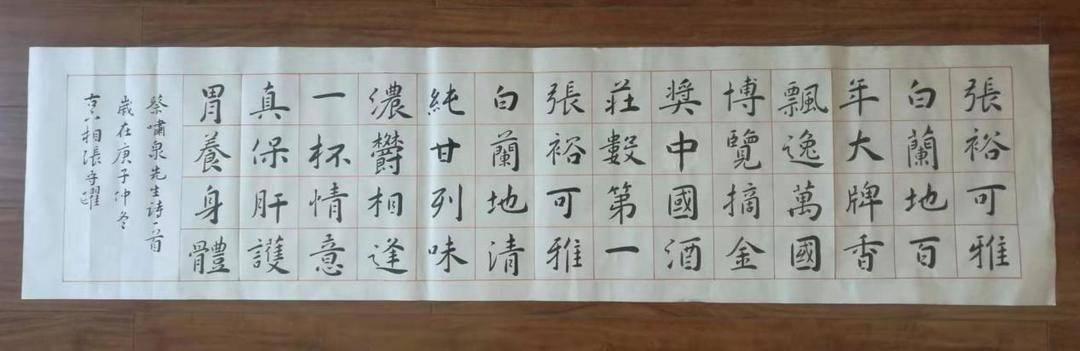 張裕可雅
白蘭地百
年大牌香
飄逸萬國
博覽摘金
獎中國酒
莊數第一
張裕可雅
白蘭地清
純甘列味
濃欝相逢
一杯情意
真保肝護
胃養身體
蔡嘯泉先生詩一首
歲在庚子仲冬
張守躍